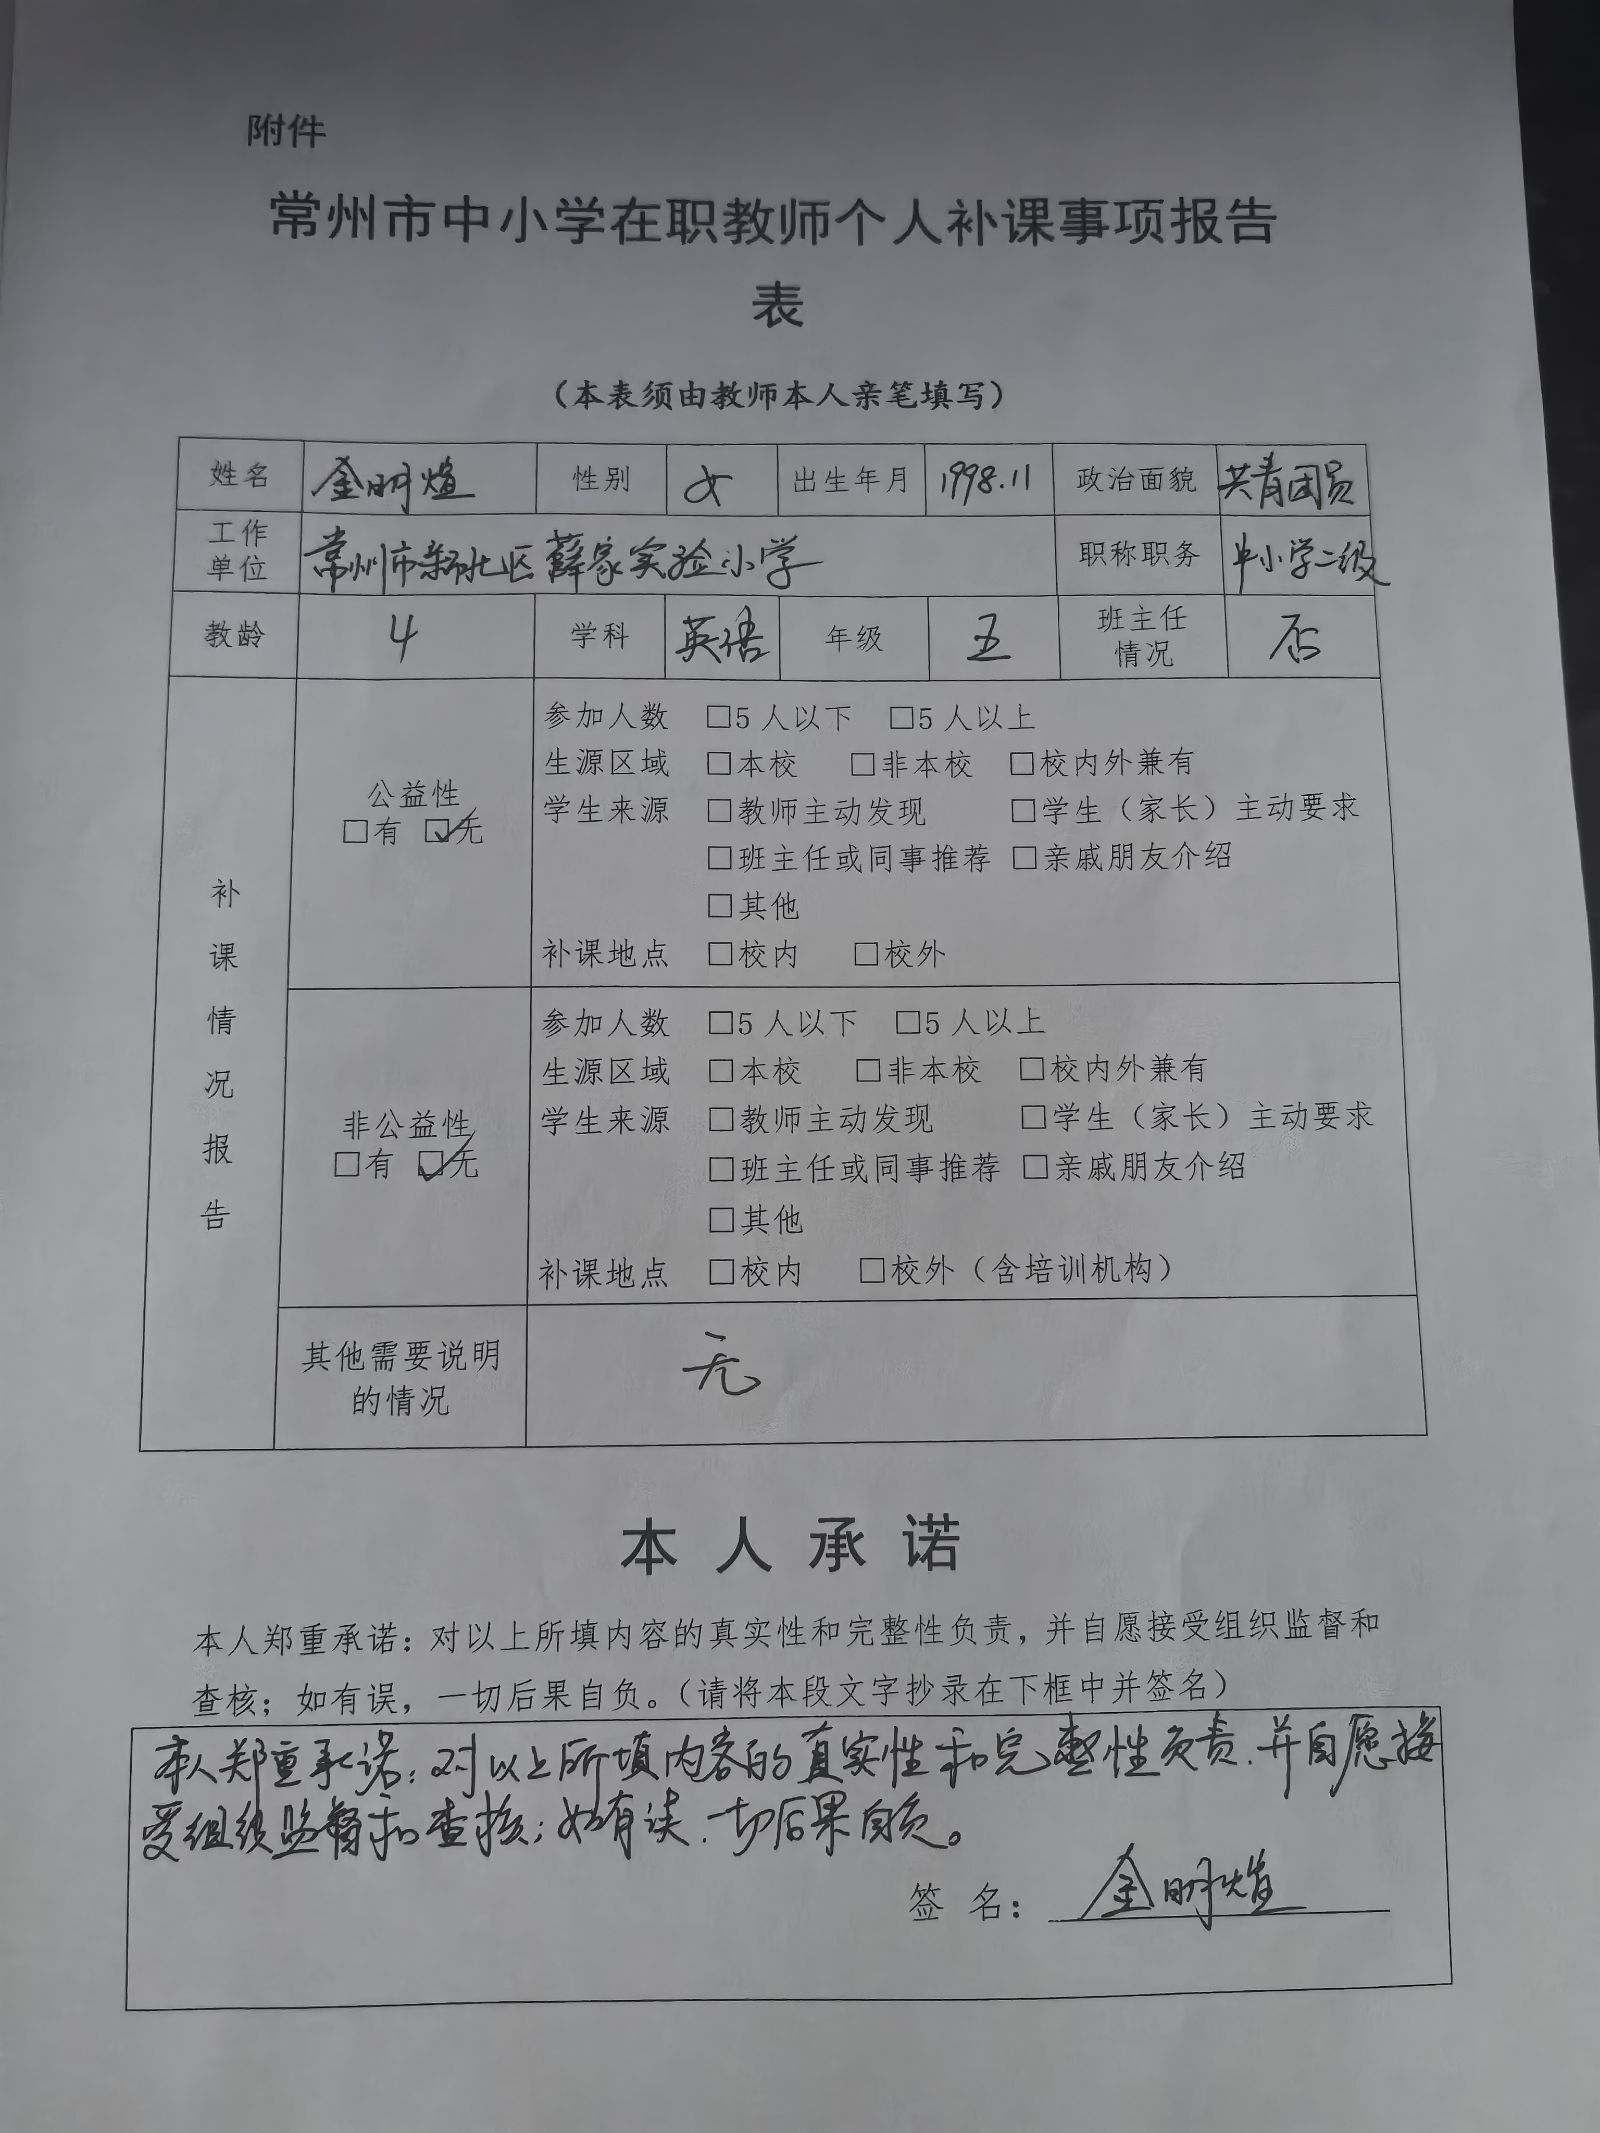 附件
常州市中小学在职教师个人补课事项报告
表
（本表须由教师本人亲笔填写）
姓名 金明煊 性别 女 出生年月 1998.11 政治面貌 共青团员
工作单位 常州市新北区薛家实验小学 职称职务 中小学二级
教龄 4 学科 英语 年级 五 班主任情况 否
补课情况报告
公益性
□有 ☑无
参加人数 □5人以下 □5人以上
生源区域 □本校 □非本校 □校内外兼有
学生来源 □教师主动发现 □学生（家长）主动要求
□班主任或同事推荐 □亲戚朋友介绍
□其他
补课地点 □校内 □校外
非公益性
□有 ☑无
参加人数 □5人以下 □5人以上
生源区域 □本校 □非本校 □校内外兼有
学生来源 □教师主动发现 □学生（家长）主动要求
□班主任或同事推荐 □亲戚朋友介绍
□其他
补课地点 □校内 □校外（含培训机构）
其他需要说明
的情况
无
本人承诺
本人郑重承诺：对以上所填内容的真实性和完整性负责，并自愿接受组织监督和
查核；如有误，一切后果自负。（请将本段文字抄录在下框中并签名）
本人郑重承诺：对以上所填内容的真实性和完整性负责，并自愿接
受组织监督和查核；如有误，一切后果自负。
签 名：金明煊